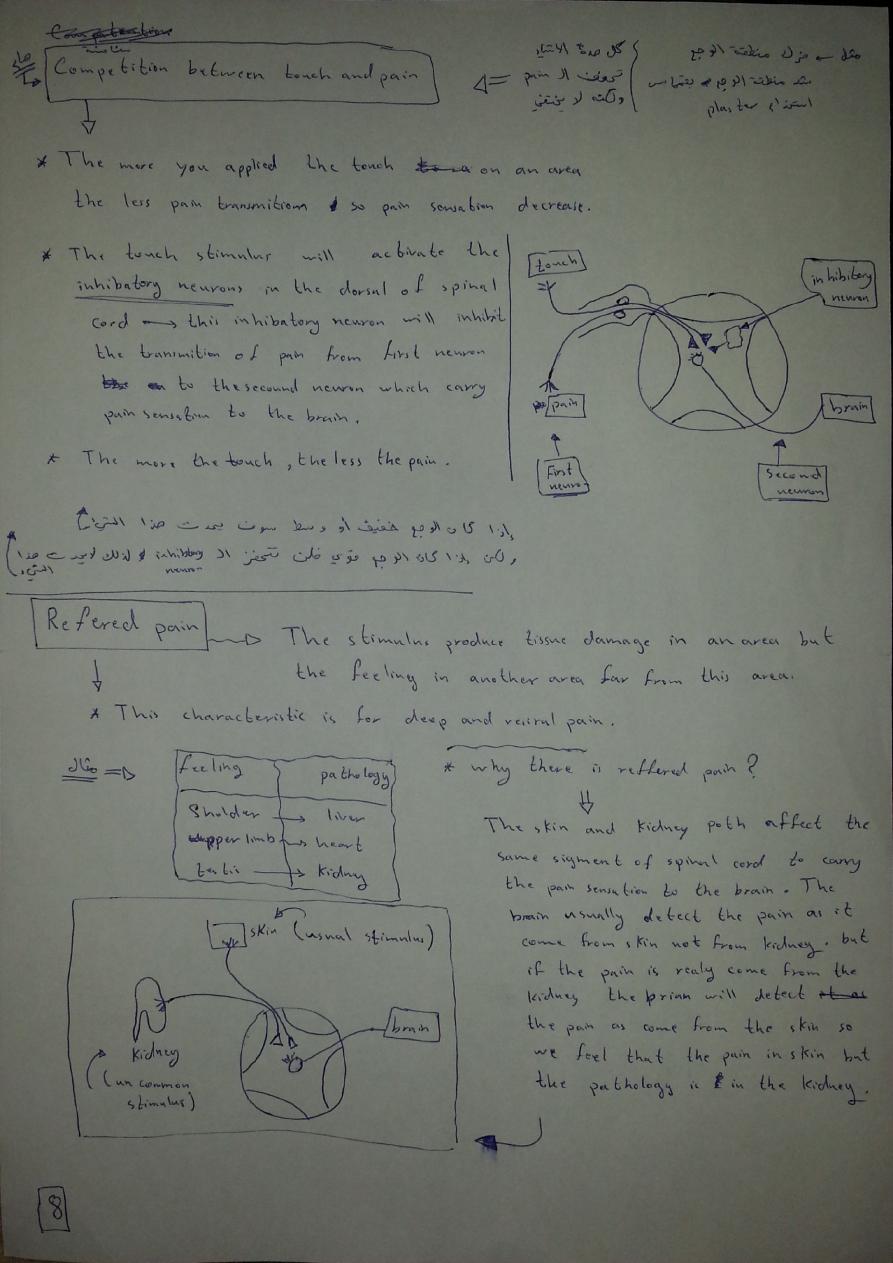 منافسة
Competition between touch and pain
كل هذه الاشياء
تخفف الـ pain
ولكنه لا يختفي
مثل ← فرك منطقة الوجع
شد منطقة الوجع بقماش
استخدام plaster
* The more you applied the touch on an area
the less pain transmitionn so pain sensation decrease.
* The touch stimulus will activate the
inhibatory neurons in the dorsal of spinal
cord → this inhibatory neuron will inhibit
the transmition of pain from first neuron
to the secound neuron which carry
pain sensation to the brain.
* The more the touch, the less the pain.
touch
inhibitory
neuron
pain
brain
First
neuron
Second
neuron
إذا كان الوجع خفيف أو وسط سوف يحدث هذا الشيء
ولكن إذا كان الوجع قوي فلن تتحفز الـ inhibitory neuron لذلك لا يحدث هذا الشيء
Refered pain → The stimulus produce tissue damage in an area but
the feeling in another area far from this area.
* This characteristic is for deep and visiral pain.
مثال ⇒
feeling pathology
Sholder → liver
upper limb → heart
testis → kidney
* why there is reffered pain?
The skin and kidney path affect the
same sigment of spinal cord to carry
the pain sensation to the brain. The
brain usually detect the pain as it
come from skin not from kidney. but
if the pain is realy come from the
kidney the brian will detect
the pain as come from the skin so
we feel that the pain in skin but
the pathology is in the kidney.
skin (usual stimulus)
brain
kidney
(un common
stimulus)
8